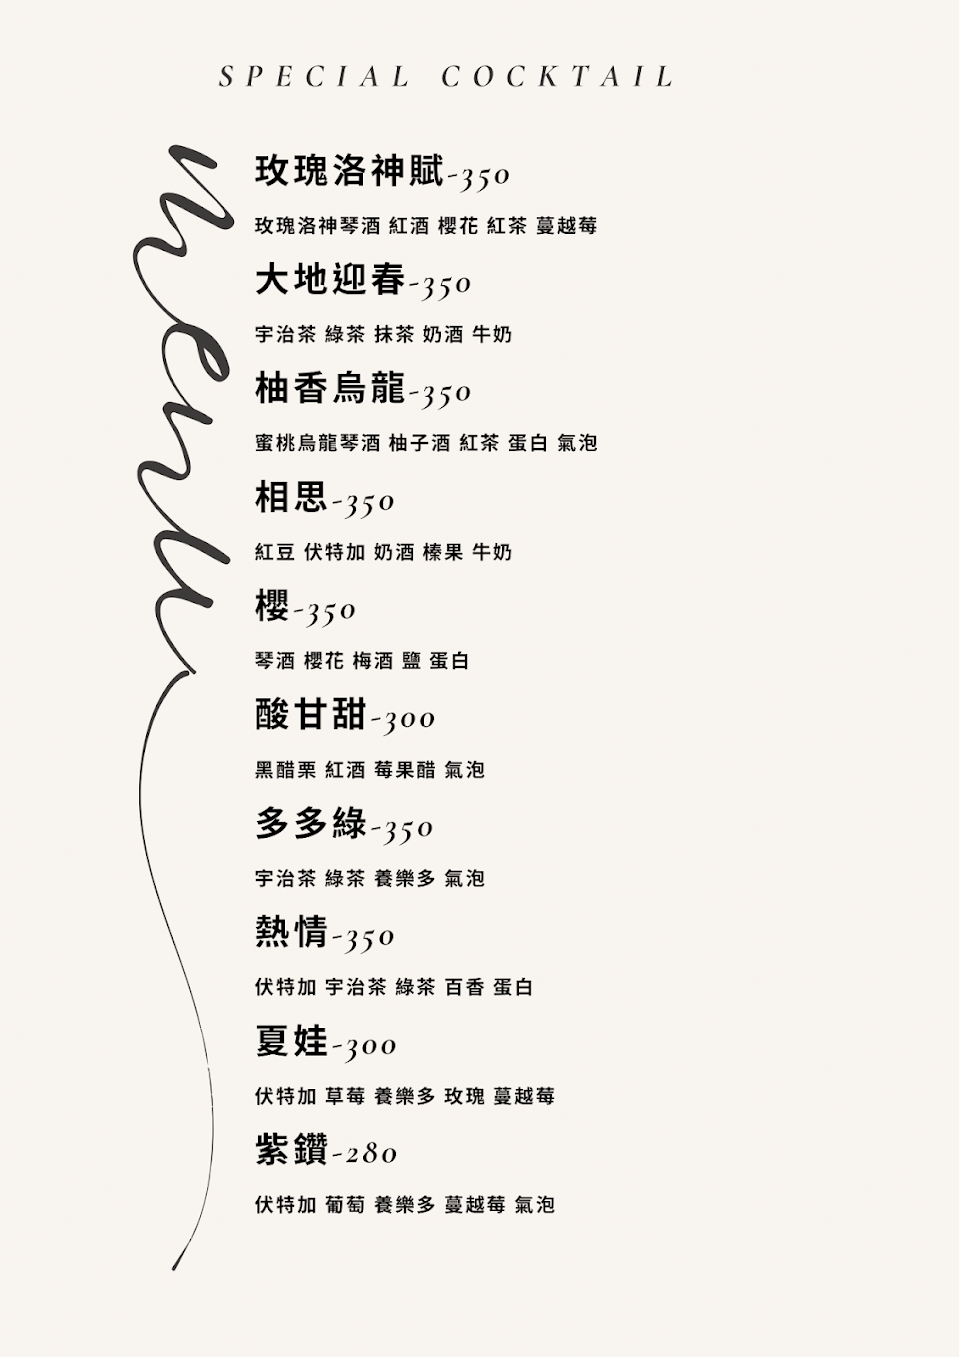 SPECIAL COCKTAIL
menu
玫瑰洛神賦-350
玫瑰洛神琴酒 紅酒 櫻花 紅茶 蔓越莓
大地迎春-350
宇治茶 綠茶 抹茶 奶酒 牛奶
柚香烏龍-350
蜜桃烏龍琴酒 柚子酒 紅茶 蛋白 氣泡
相思-350
紅豆 伏特加 奶酒 榛果 牛奶
櫻-350
琴酒 櫻花 梅酒 鹽 蛋白
酸甘甜-300
黑醋栗 紅酒 莓果醋 氣泡
多多綠-350
宇治茶 綠茶 養樂多 氣泡
熱情-350
伏特加 宇治茶 綠茶 百香 蛋白
夏娃-300
伏特加 草莓 養樂多 玫瑰 蔓越莓
紫鑽-280
伏特加 葡萄 養樂多 蔓越莓 氣泡